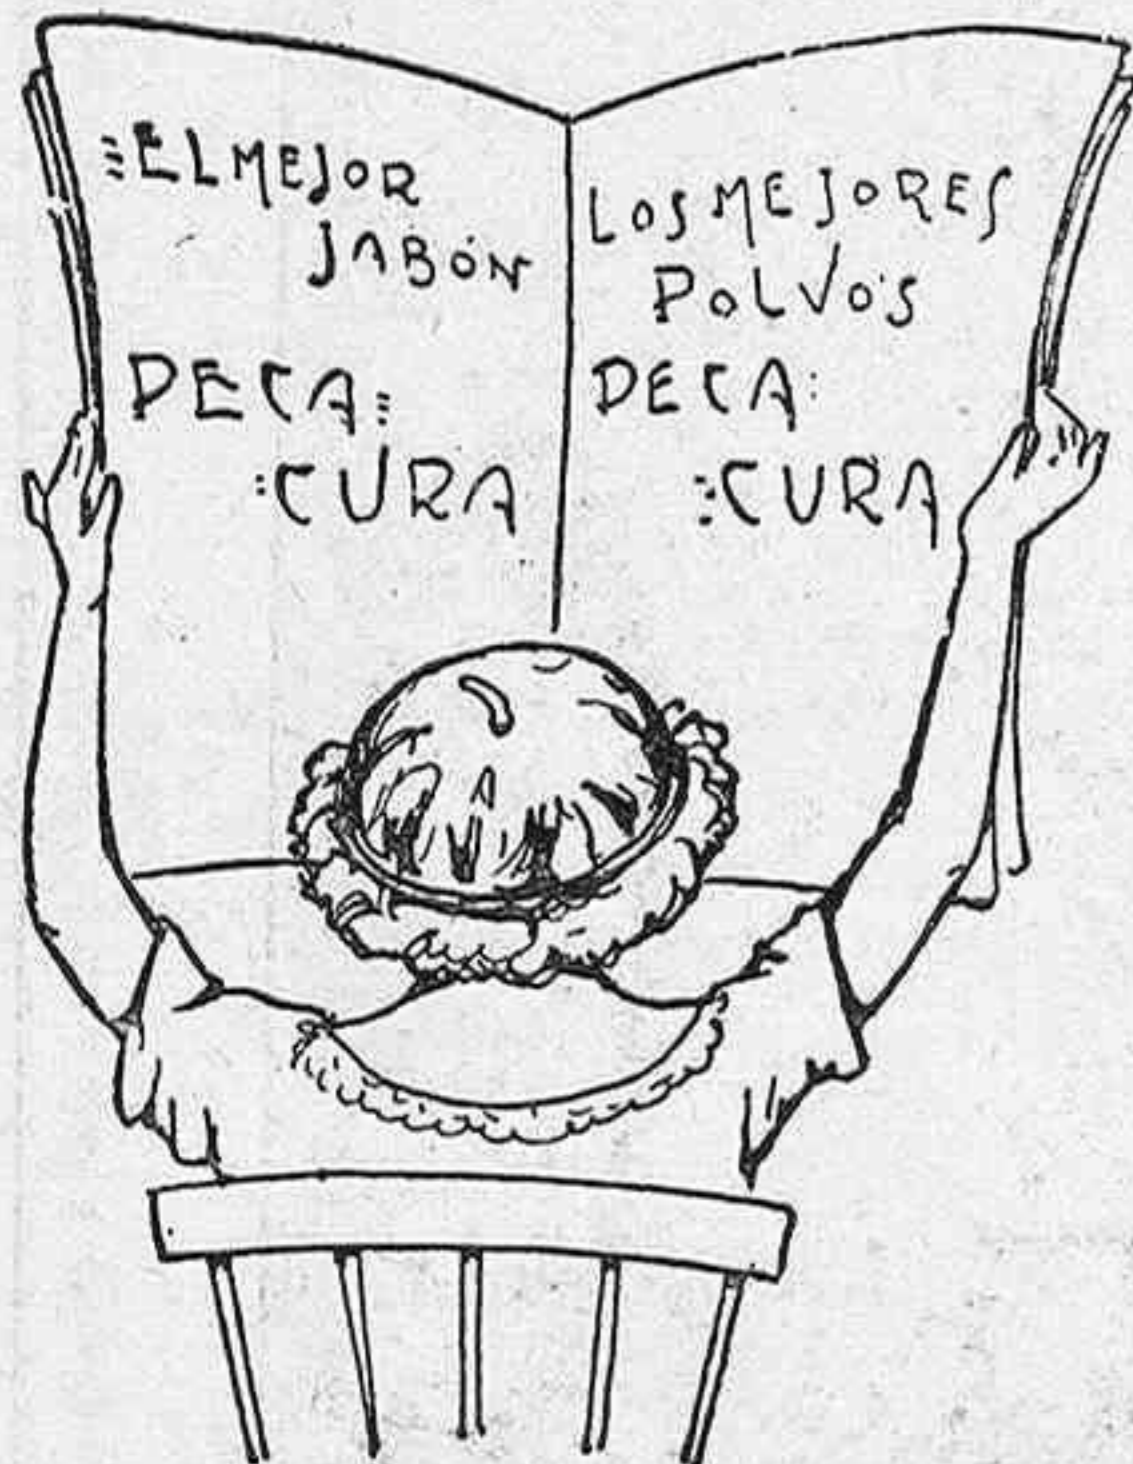 EL MEJOR
JABÓN
PECA:
:CURA
LOS MEJORES
POLVOS
PECA:
:CURA